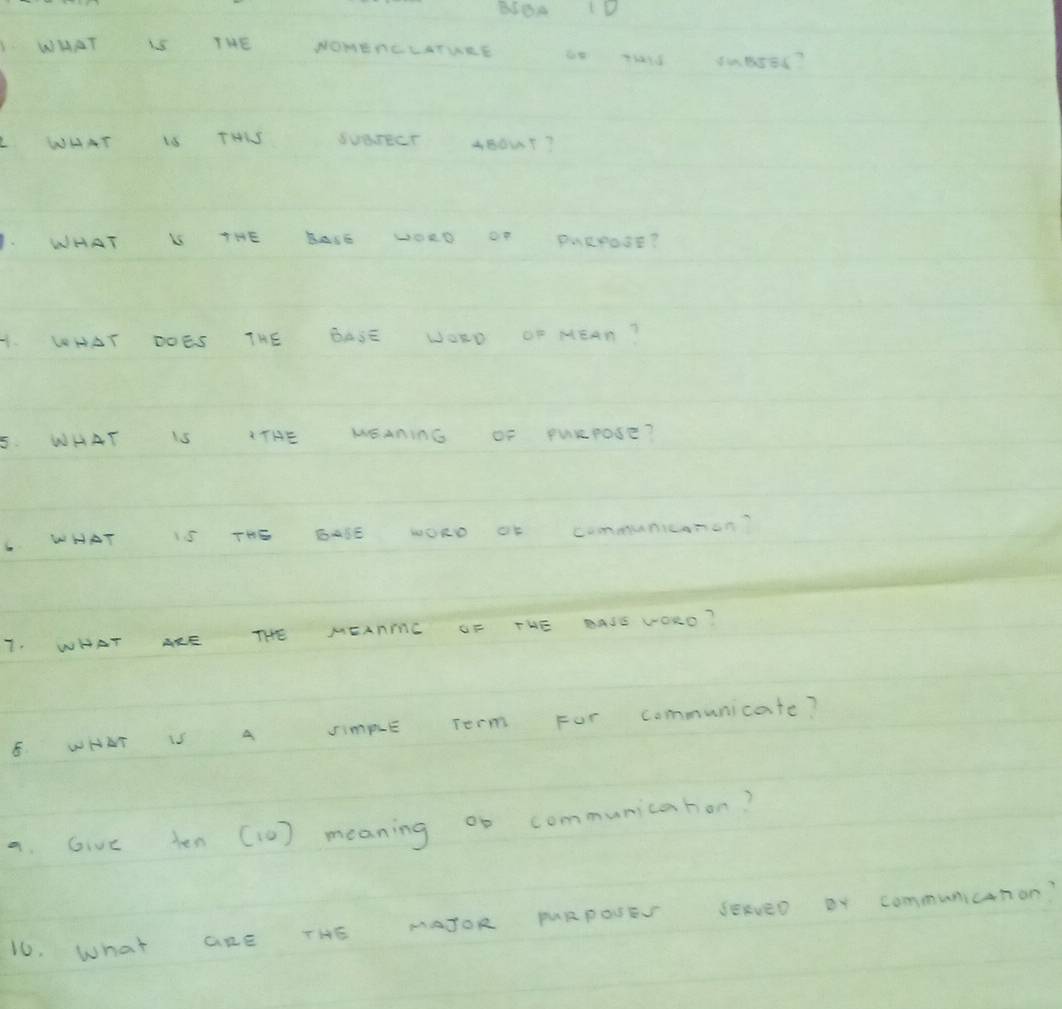 BSOA 1D
1. WHAT IS THE NOMENCLATURE OF THIS SUBJECT?
2 WHAT IS THIS SUBJECT ABOUT?
3. WHAT IS THE BASE WORD OF PURPOSE?
4. WHAT DOES THE BASE WORD OF MEAN?
5. WHAT IS THE MEANING OF PURPOSE?
6 WHAT IS THE BASE WORD OF communication?
7. WHAT ARE THE MEANING OF THE BASE WORD?
8 WHAT IS A SIMPLE Term For communicate?
9. Give ten (10) meaning of communication?
10. What are THE MAJOR PURPOSES SERVED BY communication?